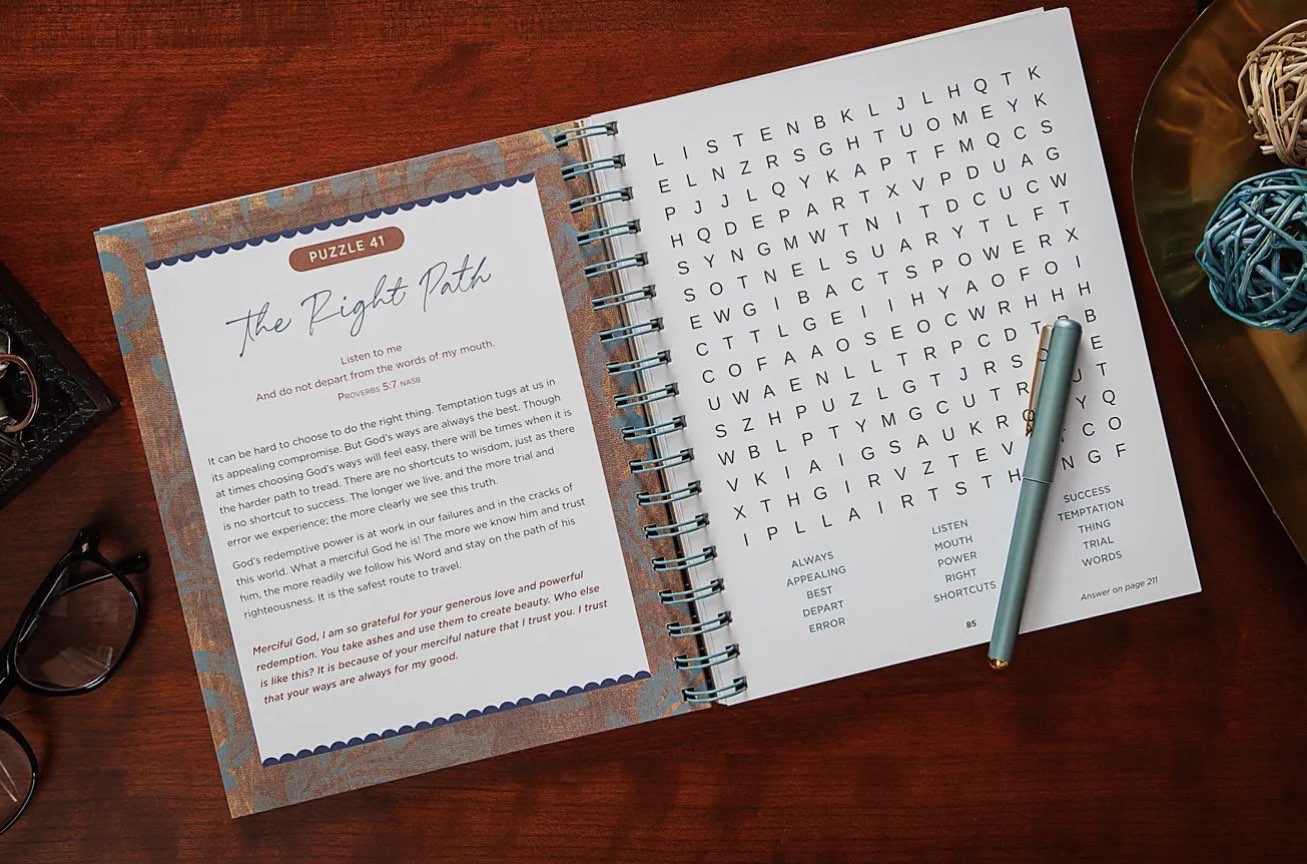 PUZZLE 41
the Right Path
Listen to me
And do not depart from the words of my mouth.
PROVERBS 5:7 NASB
It can be hard to choose to do the right thing. Temptation tugs at us in
its appealing compromise. But God's ways are always the best. Though
at times choosing God's ways will feel easy, there will be times when it is
the harder path to tread. There are no shortcuts to wisdom, just as there
is no shortcut to success. The longer we live, and the more trial and
error we experience, the more clearly we see this truth.
God's redemptive power is at work in our failures and in the cracks of
this world. What a merciful God he is! The more we know him and trust
him, the more readily we follow his Word and stay on the path of his
righteousness. It is the safest route to travel.
Merciful God, I am so grateful for your generous love and powerful
redemption. You take ashes and use them to create beauty. Who else
is like this? It is because of your merciful nature that I trust you. I trust
that your ways are always for my good.
L I S T E N B K L J L H Q T K
E L N Z R S G H T U O M E Y K
P J J L Q Y K A P T F M Q C S
H Q D E P A R T X V P D U A G
S Y N G M W T N I T D C U C W
S O T N E L S U A R Y T L F T
E W G I B A C T S P O W E R X
C T T L G E I I H Y A O F O I
C O F A A O S E O C W R H H H
U W A E N L L T R P C D T B
S Z H P U Z L G T J R S E
W B L P T Y M G C U T R T
V K I A I G S A U K R Y Q
X T H G I R V Z T E V C O
I P L L A I R T S T H N G F
ALWAYS
APPEALING
BEST
DEPART
ERROR
LISTEN
MOUTH
POWER
RIGHT
SHORTCUTS
SUCCESS
TEMPTATION
THING
TRIAL
WORDS
Answer on page 211
85